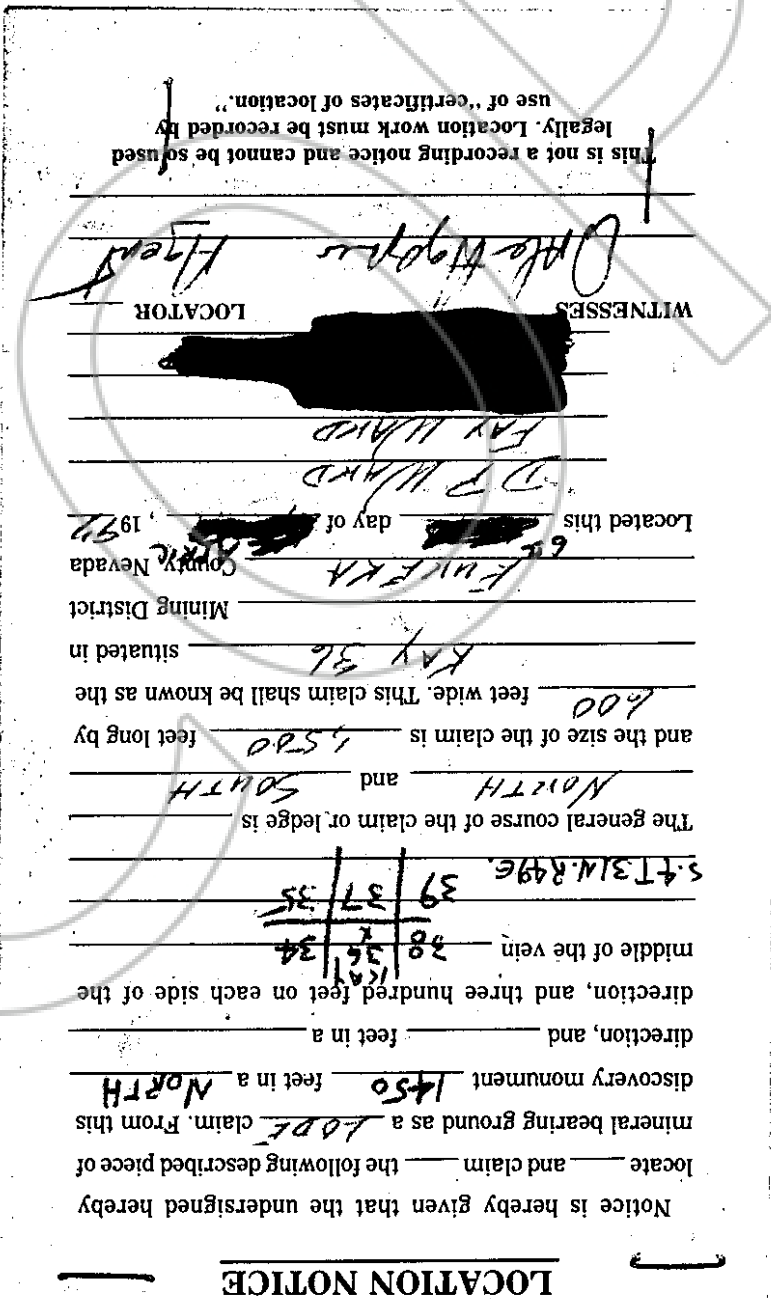 LOCATION NOTICE
Notice is hereby given that the undersigned hereby
locate and claim the following described piece of
mineral bearing ground as a LODE claim. From this
discovery monument 1450 feet in a NORTH
direction, and feet in a
direction, and three hundred feet on each side of the
KAY
middle of the vein 38 36 34
x
39 37 35
S.4 T31N.R49E.
The general course of the claim or ledge is
NORTH and SOUTH
and the size of the claim is 1,500 feet long by
600 feet wide. This claim shall be known as the
KAY 36 situated in
Mining District
EUREKA County, Nevada
6th APRIL
Located this day of , 1992
D P WARD
FAY WARD
WITNESSES LOCATOR
Agent
This is not a recording notice and cannot be so used
legally. Location work must be recorded by
use of "certificates of location."